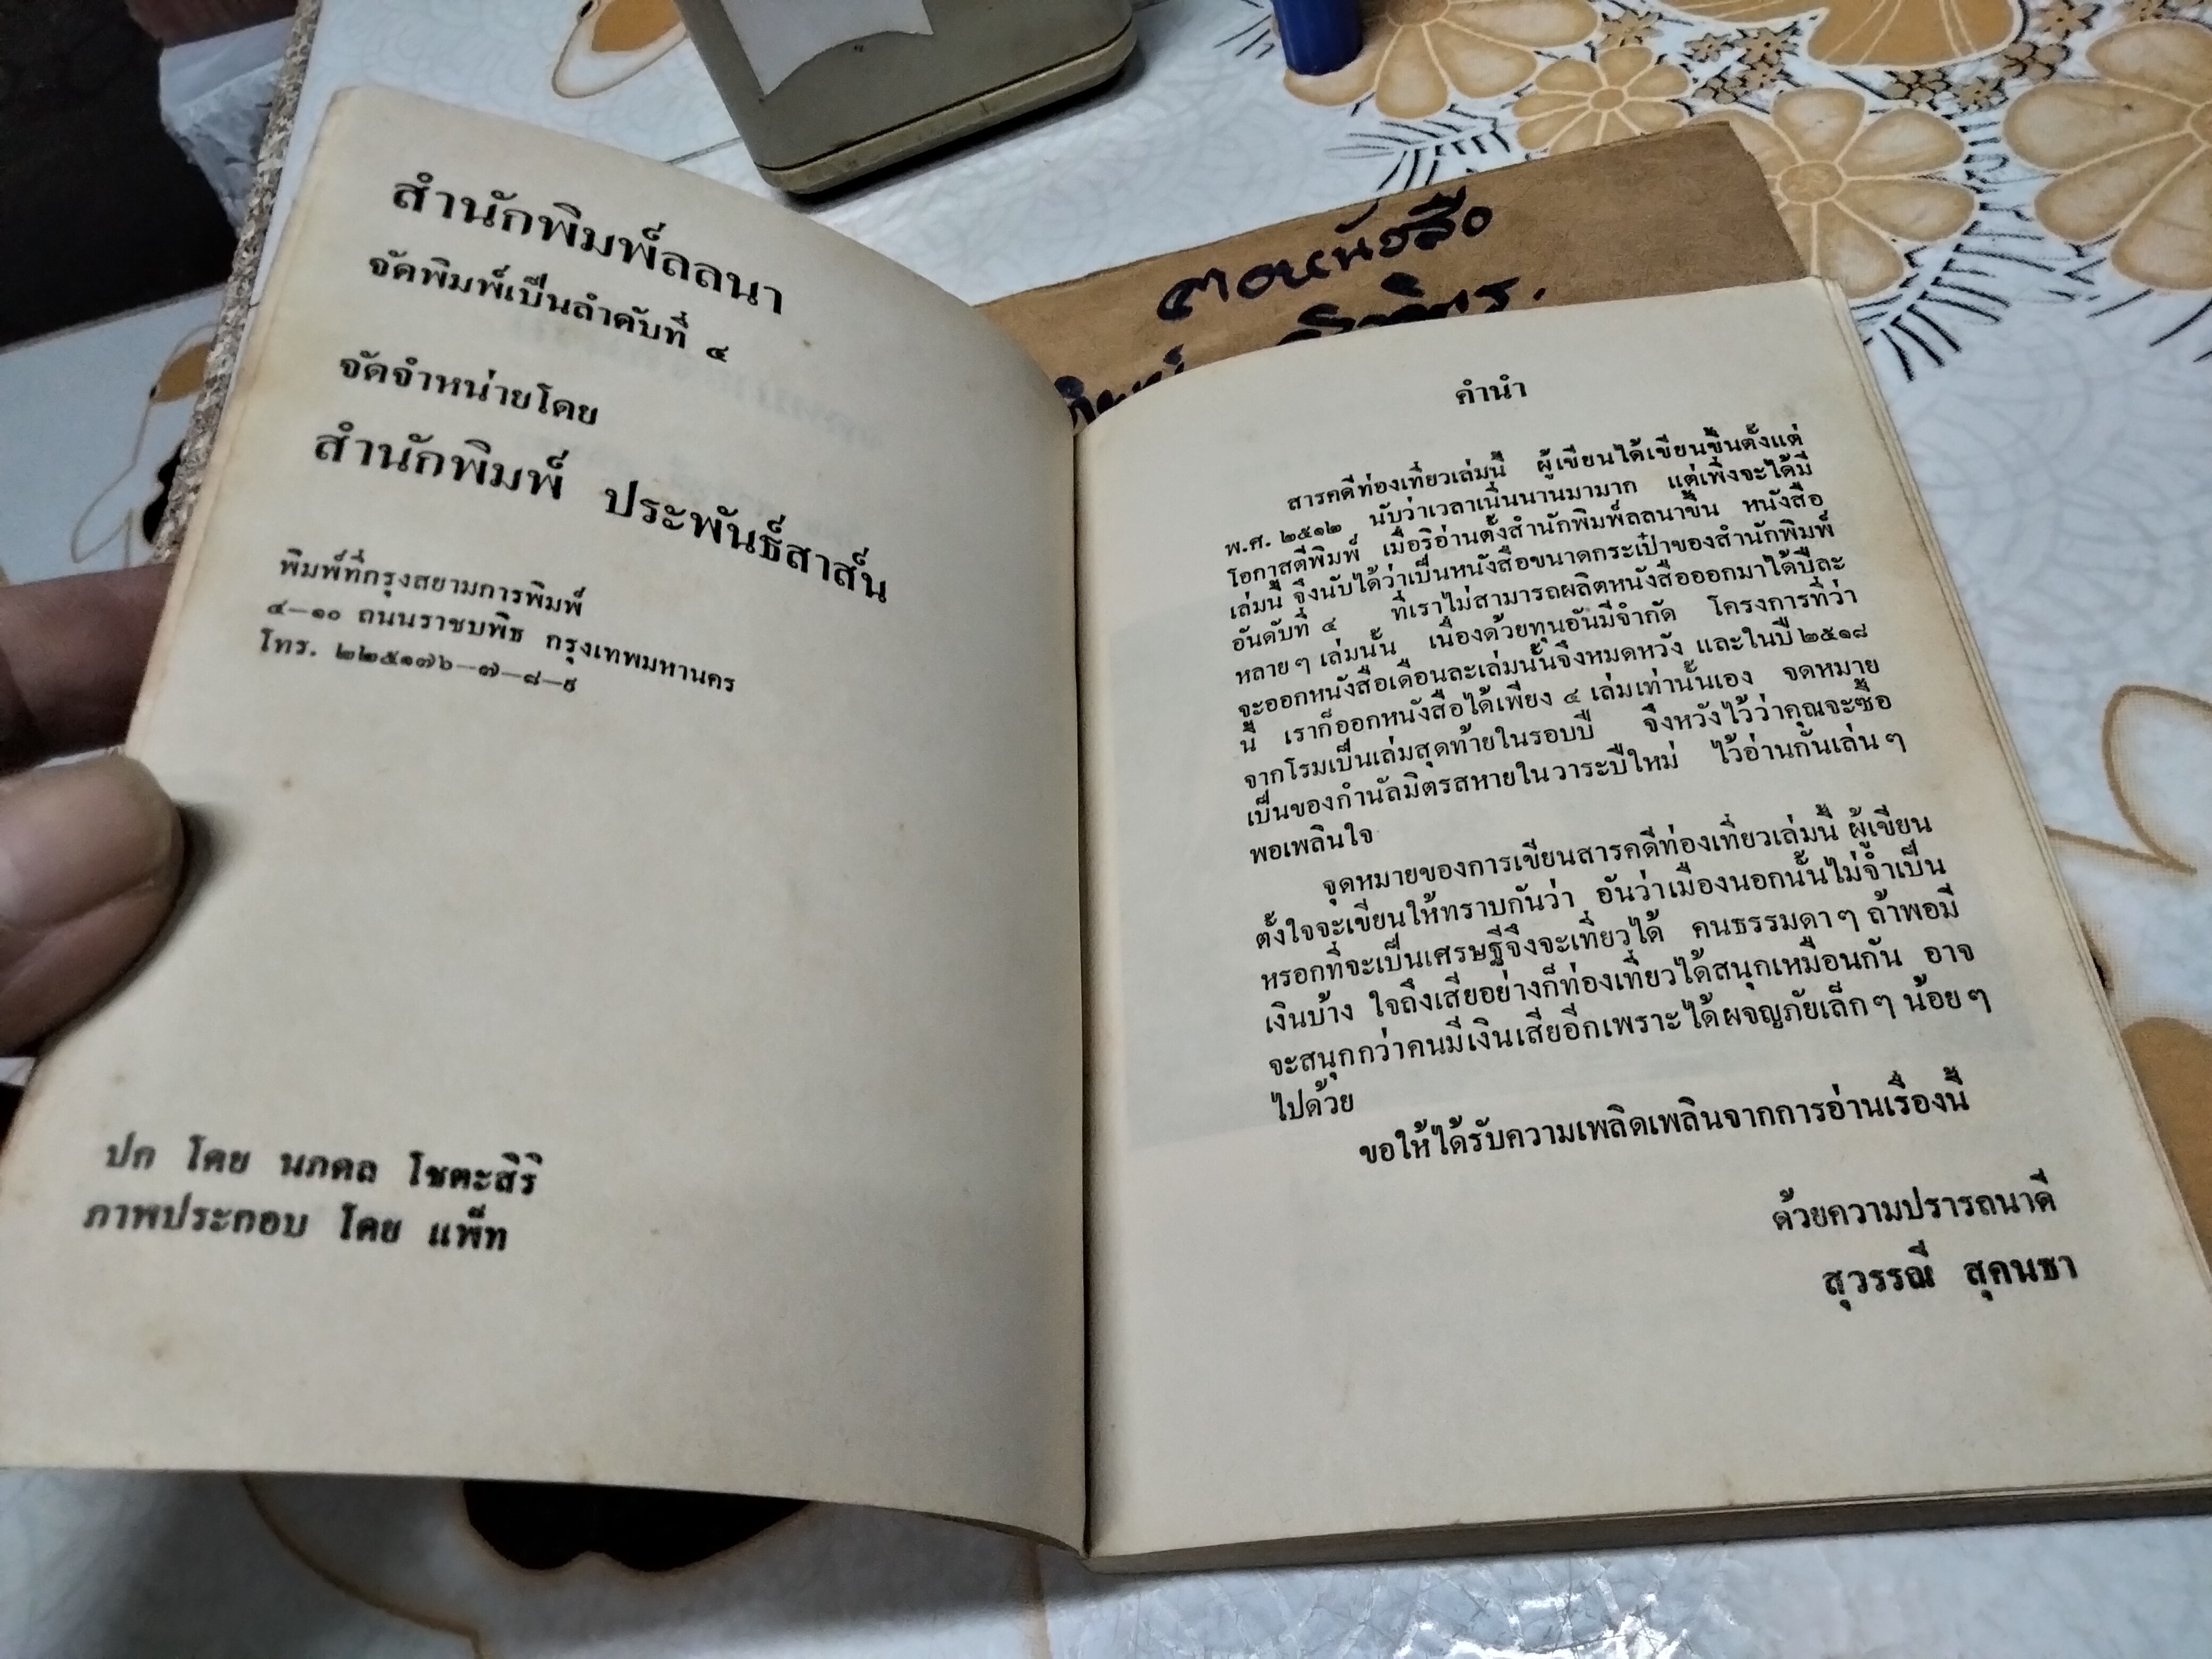 สำนักพิมพ์ลลนา
จัดพิมพ์เป็นลำดับที่ ๔
จัดจำหน่ายโดย
สำนักพิมพ์ ประพันธ์สาส์น
พิมพ์ที่กรุงสยามการพิมพ์
๔—๑๐ ถนนราชบพิธ กรุงเทพมหานคร
โทร. ๒๒๕๑๗๖—๗—๘—๙
ปก โดย นภดล โชตะสิริ
ภาพประกอบ โดย แพ็ท
คำนำ
สารคดีท่องเที่ยวเล่มนี้ ผู้เขียนได้เขียนขึ้นตั้งแต่
พ.ศ. ๒๕๑๒ นับว่าเวลาเนิ่นนานมามาก แต่เพิ่งจะได้มี
โอกาสตีพิมพ์ เมื่อริอ่านตั้งสำนักพิมพ์ลลนาขึ้น หนังสือ
เล่มนี้ จึงนับได้ว่าเป็นหนังสือขนาดกระเป๋าของสำนักพิมพ์
อันดับที่ ๔ ที่เราไม่สามารถผลิตหนังสือออกมาได้ปีละ
หลายๆ เล่มนั้น เนื่องด้วยทุนอันมีจำกัด โครงการที่ว่า
จะออกหนังสือเดือนละเล่มนั้นจึงหมดหวัง และในปี ๒๕๑๘
นี้ เราก็ออกหนังสือได้เพียง ๔ เล่มเท่านั้นเอง จดหมาย
จากโรมเป็นเล่มสุดท้ายในรอบปี จึงหวังไว้ว่าคุณจะซื้อ
เป็นของกำนัลมิตรสหายในวาระปีใหม่ ไว้อ่านกันเล่นๆ
พอเพลินใจ
จุดหมายของการเขียนสารคดีท่องเที่ยวเล่มนี้ ผู้เขียน
ตั้งใจจะเขียนให้ทราบกันว่า อันว่าเมืองนอกนั้นไม่จำเป็น
หรอกที่จะเป็นเศรษฐีจึงจะเที่ยวได้ คนธรรมดาๆ ถ้าพอมี
เงินบ้าง ใจถึงเสียอย่างก็ท่องเที่ยวได้สนุกเหมือนกัน อาจ
จะสนุกกว่าคนมีเงินเสียอีกเพราะได้ผจญภัยเล็กๆ น้อยๆ
ไปด้วย
ขอให้ได้รับความเพลิดเพลินจากการอ่านเรื่องนี้
ด้วยความปรารถนาดี
สุวรรณี สุคนธา